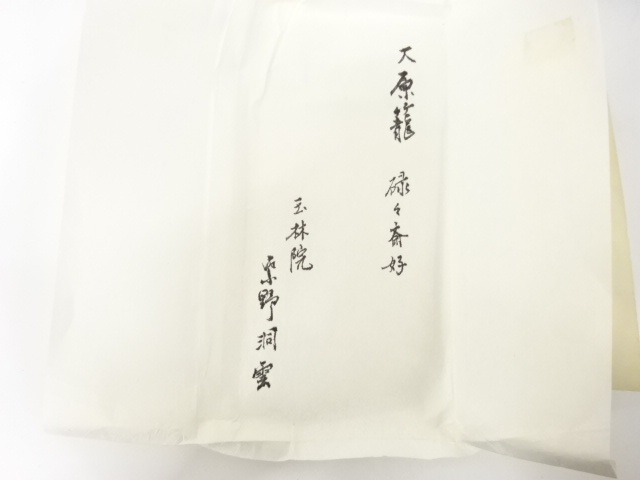 大原籠 碌々斎好
玉林院
紫野洞雲